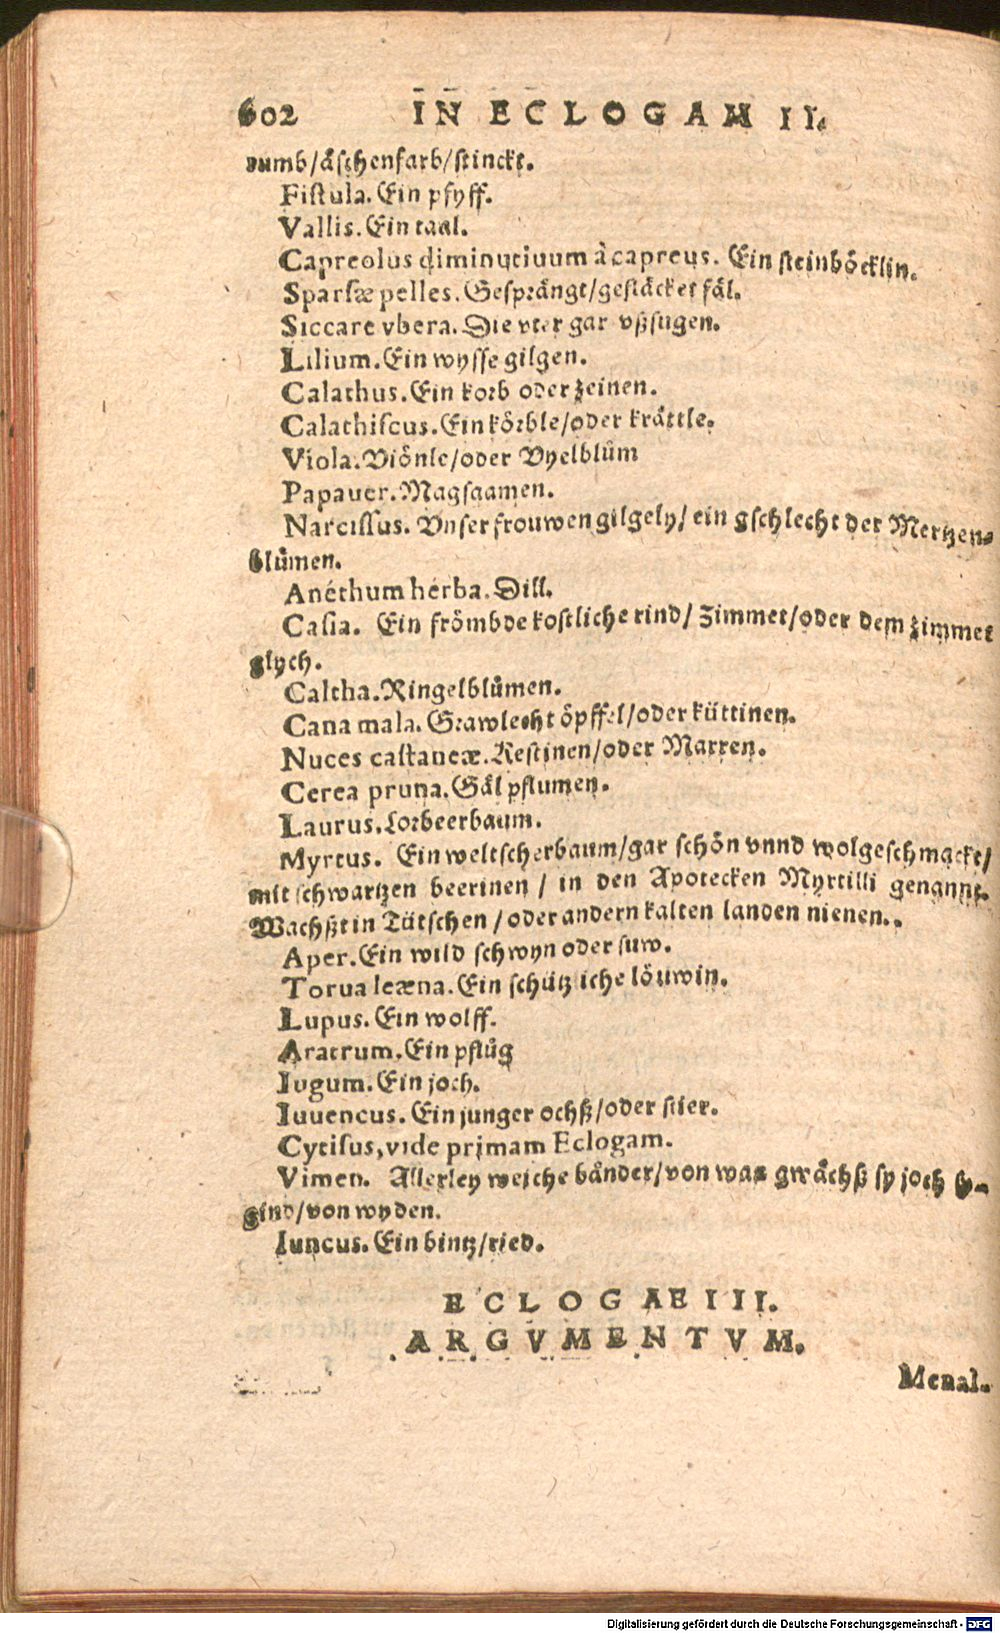 602 IN ECLOGAM II.
rumb/äschenfarb/stinckt.
Fistula. Ein pfyff.
Vallis. Ein taal.
Capreolus diminutiuum à capreus. Ein steinböcklin.
Sparsæ pelles. Gesprängt/gestäcket fäl.
Siccare vbera. Die vter gar vßsugen.
Lilium. Ein wysse gilgen.
Calathus. Ein korb oder zeinen.
Calathiscus. Ein körble/oder krättle.
Viola. Viönle/oder Vyelblům
Papauer. Magsaamen.
Narcissus. Vnser frouwen gilgely/ ein gschlecht der Mertzen-
blůmen.
Anéthum hérba. Dill.
Casia. Ein frömbde kostliche rind/ Zimmet/oder dem zimmet
glych.
Caltha. Ringelblůmen.
Cana mala. Grawlecht öpffel/oder küttinen.
Nuces castaneæ. Kestinen/oder Marren.
Cerea pruna. Gäl pflumen.
Laurus. Lorbeerbaum.
Myrtus. Ein weltscherbaum/gar schön vnnd wolgeschmackt/
mit schwartzen beerinen / in den Apotecken Myrtilli genannt.
Wachßt in Tütschen / oder andern kalten landen nienen..
Aper. Ein wild schwyn oder suw.
Torua leæna. Ein schützliche löuwin.
Lupus. Ein wolff.
Aratrum. Ein pflůg
Iugum. Ein joch.
Iuuencus. Ein junger ochß/oder stier.
Cytisus, vide primam Eclogam.
Vimen. Allerley weiche bånder/von was gwächß sy joch sy-
gind/von wyden.
Iuncus. Ein bintz/ried.
ECLOGAE III.
ARGVMENTVM.
Menal.
Digitalisierung gefördert durch die Deutsche Forschungsgemeinschaft - DFG